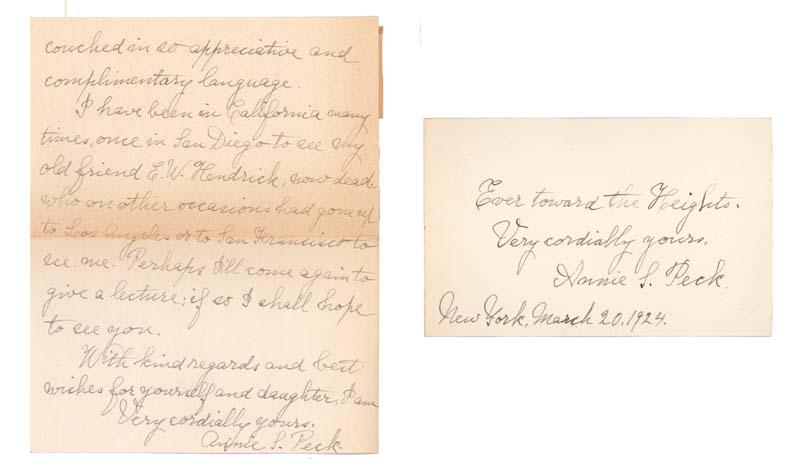 couched in so appreciative and
complimentary language.
I have been in California many
times, once in San Diego to see my
old friend E.W. Hendrick, now dead
who on other occasions had gone up
to Los Angeles or to San Francisco to
see me. Perhaps I'll come again to
give a lecture; if so I shall hope
to see you.
With kind regards and best
wishes for yourself and daughter, I am
Very cordially yours.
Annie S. Peck.
Ever toward the Heights.
Very cordially yours.
Annie S. Peck.
New York, March 20, 1924.